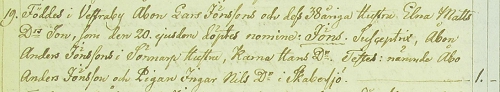 19. Föddes i Veßraby Åbon Lars Jönssons och dess Hånga Hustru Elna Matts
Dtr Son, som den 20. ejusdem döptes nomine: Jöns. Susceptrix, Åbon
Anders Jönssons i Tormarp Hustru, Karna Hans Dr. Testes: nämnde Åbo
Anders Jönsson och Pigan Ingar Nils Dr i Skabersjö. 1.